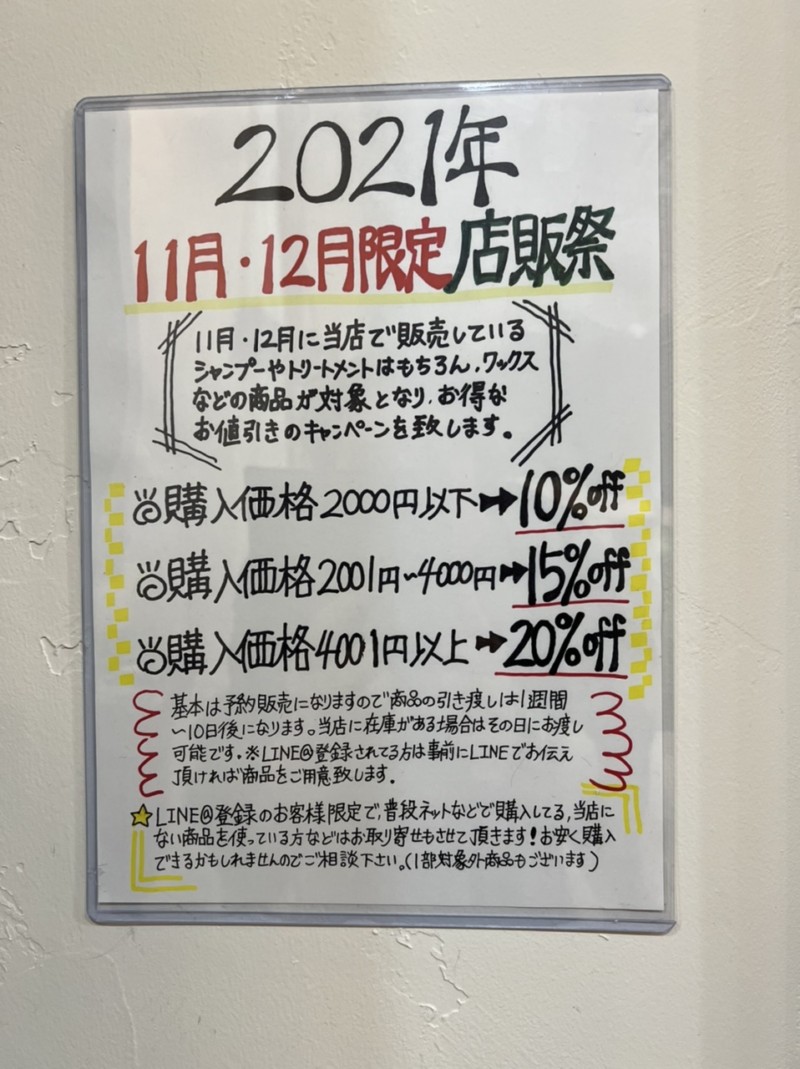 2021年
11月・12月限定店販祭
11月・12月に当店で販売している
シャンプーやトリートメントはもちろん、ワックス
などの商品が対象となり、お得な
お値引きのキャンペーンを致します。
購入価格2000円以下➡10%off
購入価格2001円~4000円➡15%off
購入価格4001円以上➡20%off
基本は予約販売になりますので商品の引き渡しは1週間
~10日後になります。当店に在庫がある場合はその日にお渡し
可能です。※LINE@登録されてる方は事前にLINEでお伝え
頂ければ商品をご用意致します。
☆LINE@登録のお客様限定で、普段ネットなどで購入してる、当店に
ない商品を使っている方などはお取り寄せもさせて頂きます!お安く購入
できるかもしれませんのでご相談下さい。(1部対象外商品もございます)